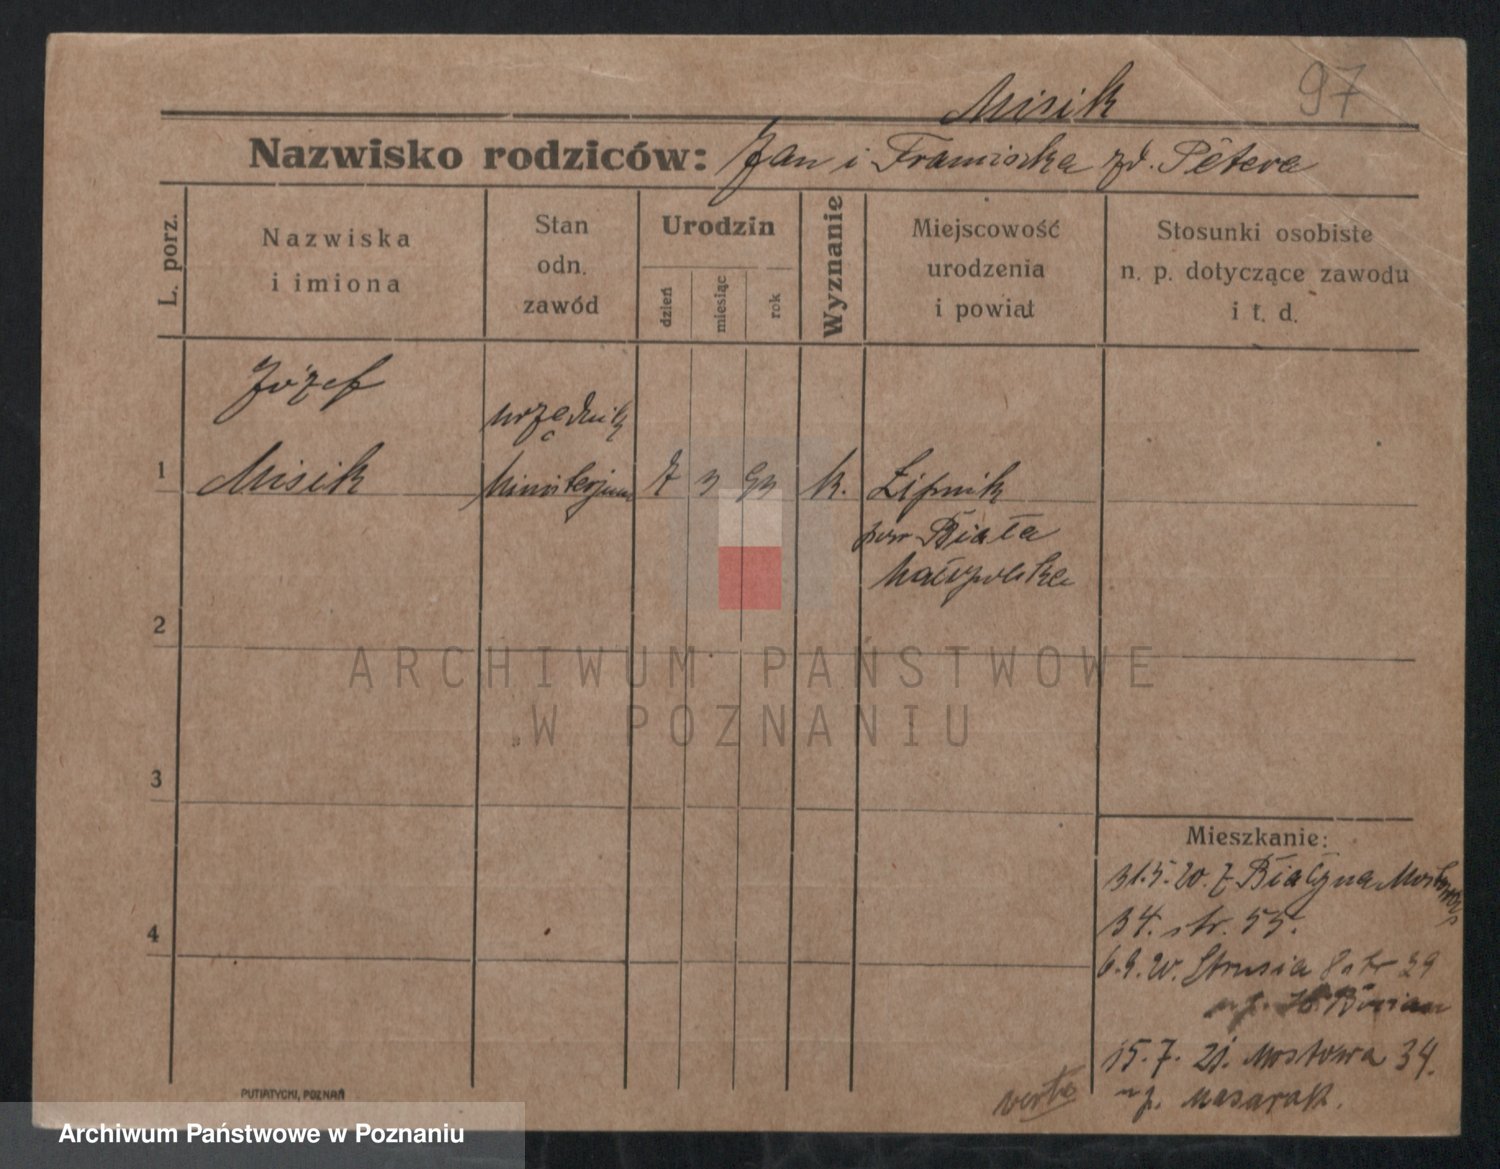 97
Misik
Nazwisko rodziców: Jan i Franciszka zd. Pêtera
L. porz.
Nazwiska
i imiona
Stan
odn.
zawód
Urodzin
dzień
miesiąc
rok
Wyznanie
Miejscowość
urodzenia
i powiat
Stosunki osobiste
n. p. dotyczące zawodu
i t. d.
Józef
urzędnik
1 Misik Ministerjum 7 3 93 k. Lipnik
pow Biała
Małopolska
2
ARCHIWUM PAŃSTWOWE
W POZNANIU
3
Mieszkanie:
31.5.20. z
34. str. 53.
4
6.9.20. Strusia 8 str 29
15.7.21. Mostowa 34.
u p. Masarak.
verte
PUTIATYCKI, POZNAŃ
Archiwum Państwowe w Poznaniu